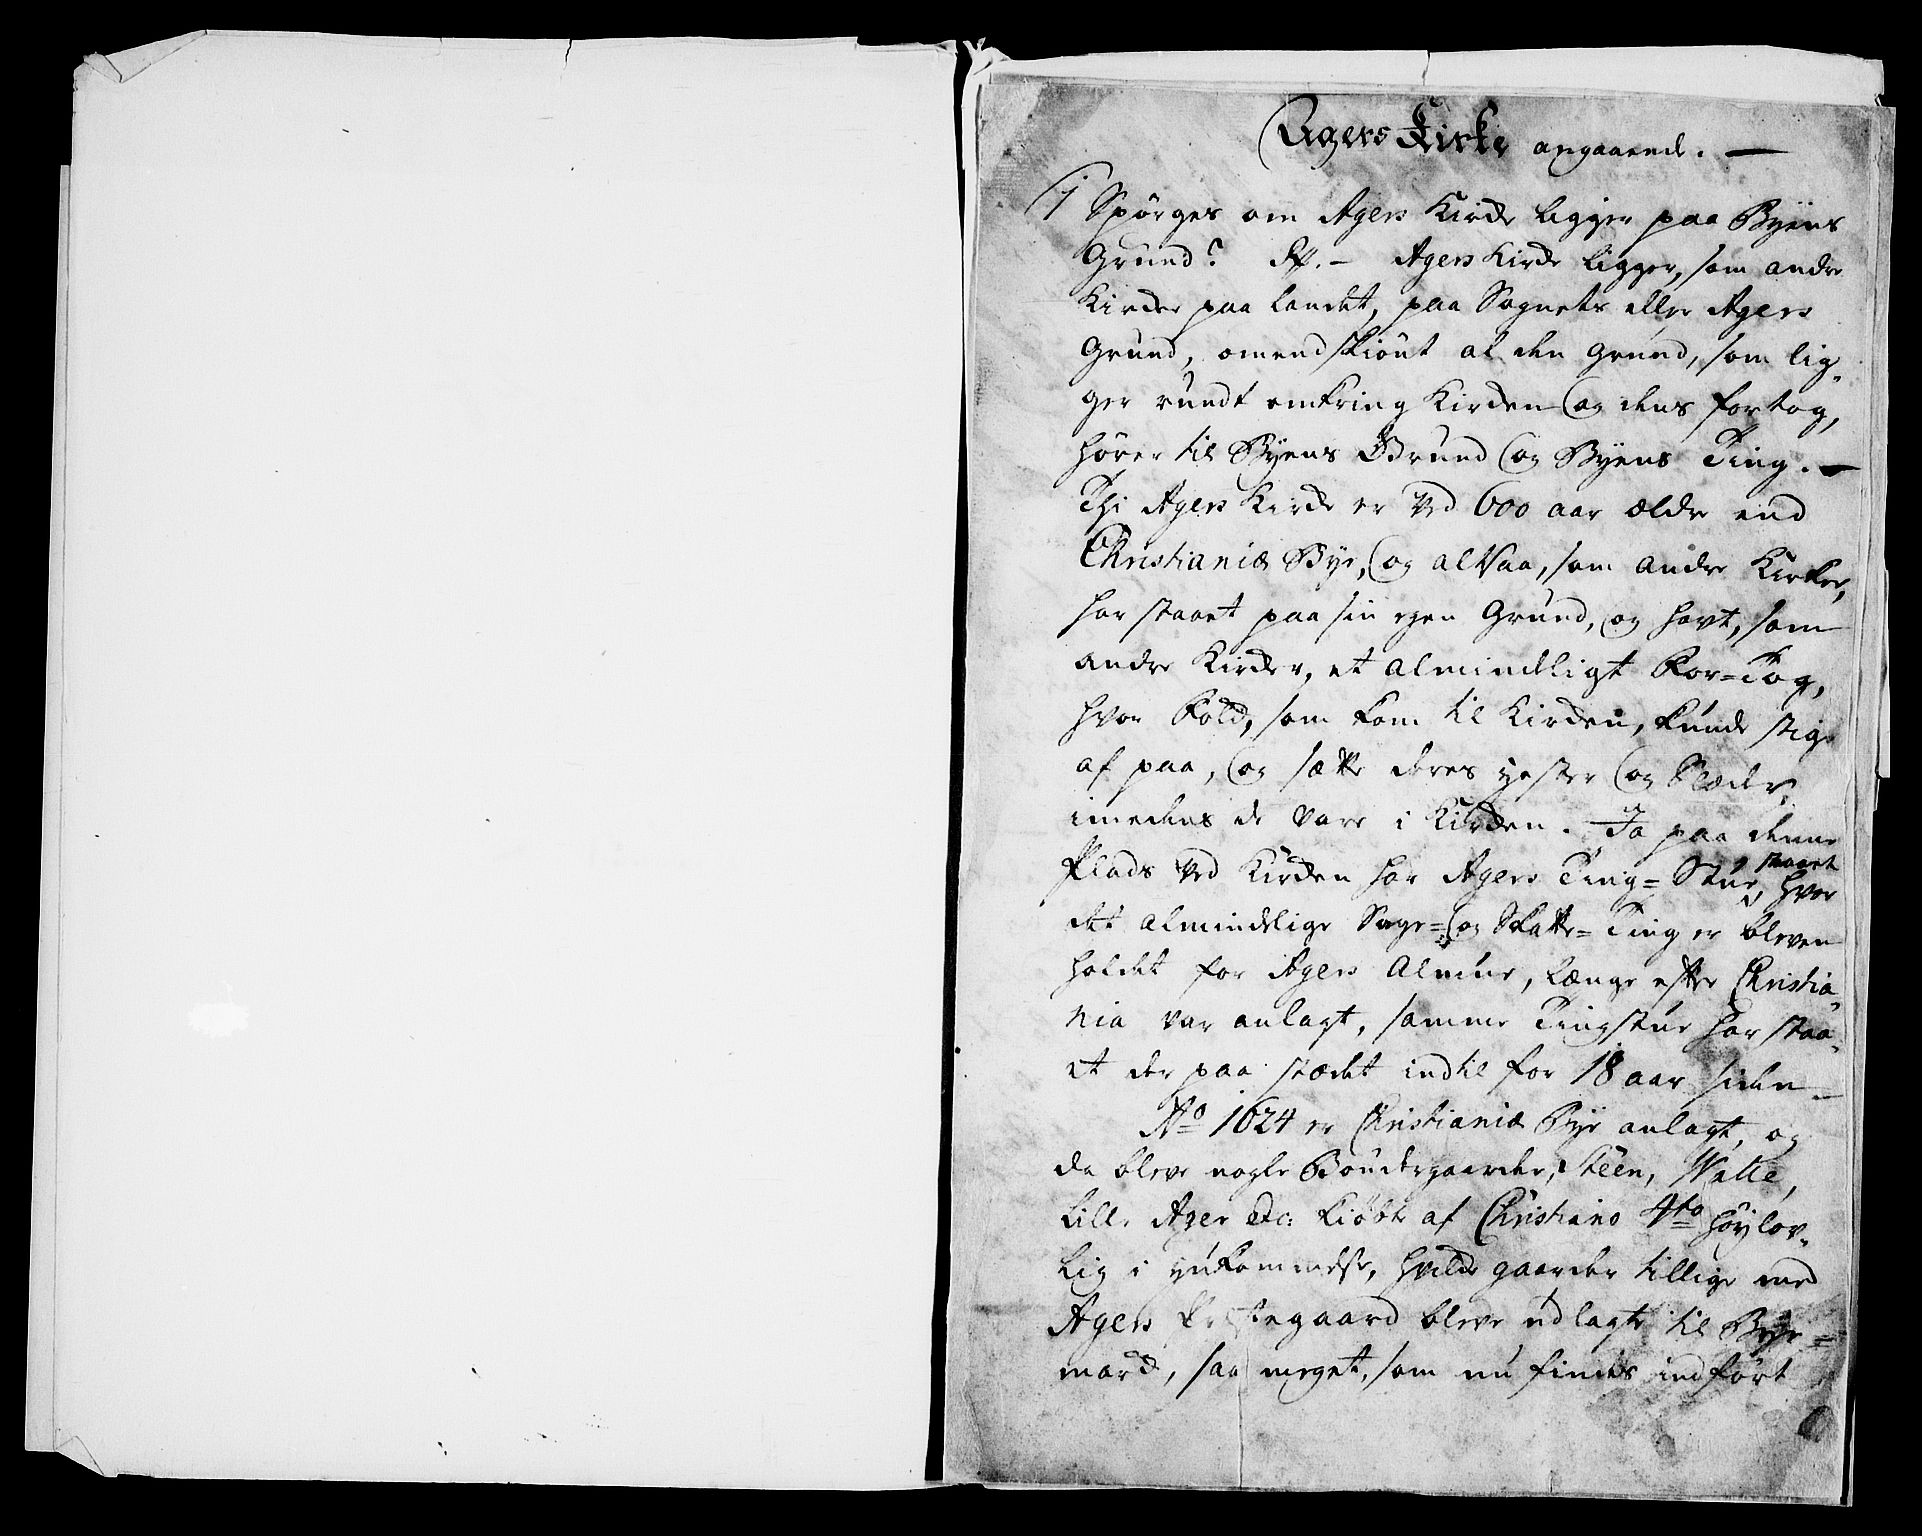 Agers Kirke angaaende. —
1 Spörges om Agers Kirke ligger paa Byens
Grund? Rp. — Agers Kirke ligger, som andre
Kirker paa Landet, paa Sognets eller Agers
Grund, omendskiönt al den grund, som lig-
ger rundt omkring Kirken og dens fortog,
hörer til Byens Grund og Byens Ting. —
Thi Agers Kirke er ved 600 aar ældre end
Christianiæ Bye, og altsaa, som andre Kirker,
har staaet paa sin egen Grund, og havt, som
andre Kirker, et almindeligt For=Tog,
hvor Folk, som kom til Kirken, kunde stige
af paa, og sætte deres hester og Slæder,
imedens de vare i Kirken. Ja paa denne
Plads ved Kirken har Agers Ting=Stue staaet, hvor
det almindelige Sage= og Skatte=Ting er bleven
holdet for Agers Almue, længe efter Christia-
nia var anlagt, samme Tingstue har staa-
et der paa stædet indtil for 18 aar siden
Ao 1624 er Christianiæ Bye anlagt, og
da bleve nogle Böndergaarder, Steen, Valle,
Lille Ager etc: kiöbte af Christiano 4to höylov-
lig i hukommelse, hvilke gaarder tillige med
Agers Præstegaard bleve udlagte til Bye=
mark, saa meget, som nu findes indfört